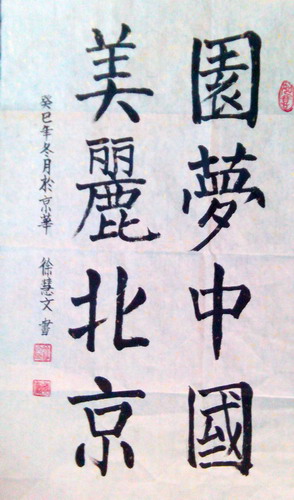 園夢中國
美麗北京
癸巳年冬月於京華 徐慧文書